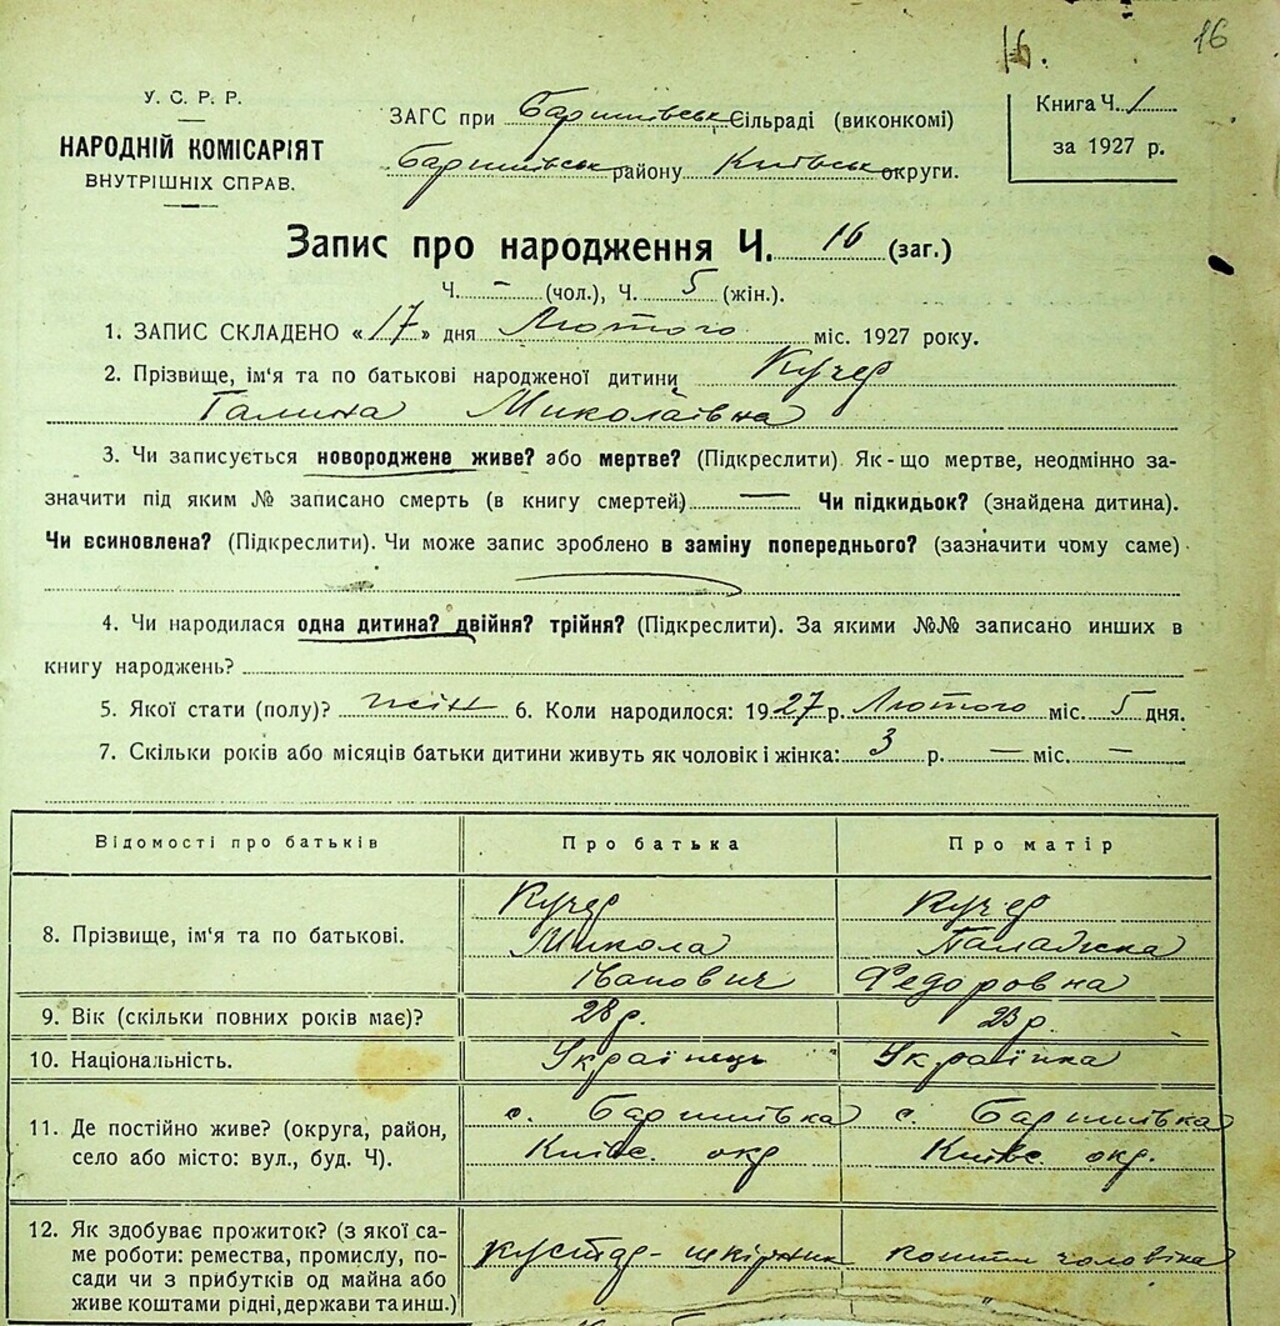 16.
16
У. С. Р. Р.
НАРОДНІЙ КОМІСАРІЯТ
ВНУТРІШНІХ СПРАВ.
ЗАГС при Баришівськ Сільраді (виконкомі)
Баришівськ району Київськ округи.
Книга Ч. 1
за 1927 р.
Запис про народження Ч. 16 (заг.)
Ч. – (чол.), Ч. 5 (жін.).
1. ЗАПИС СКЛАДЕНО «17» дня Лютого міс. 1927 року.
2. Прізвище, ім'я та по батькові народженої дитини Кучер
Галина Миколаївна
3. Чи записується новороджене живе? або мертве? (Підкреслити). Як-що мертве, неодмінно за-
значити під яким № записано смерть (в книгу смертей) — Чи підкидьок? (знайдена дитина).
Чи всиновлена? (Підкреслити). Чи може запис зроблено в заміну попереднього? (зазначити чому саме)
4. Чи народилася одна дитина? двійня? трійня? (Підкреслити). За якими №№ записано инших в
книгу народжень?
5. Якої стати (полу)? жін 6. Коли народилося: 1927 р. Лютого міс. 5 дня.
7. Скільки років або місяців батьки дитини живуть як чоловік і жінка: 3 р. — міс. —
Відомості про батьків Про батька Про матір
8. Прізвище, ім'я та по батькові.
Кучер
Микола
Іванович
Кучер
Палажка
Федоровна
9. Вік (скільки повних років має)? 28 р. 23 р.
10. Національність. Українець Українка
11. Де постійно живе? (округа, район,
село або місто: вул., буд. Ч).
с. Баришівка
Київс. окр
с. Баришівка
Київс. окр.
12. Як здобуває прожиток? (з якої са-
ме роботи: ремества, промислу, по-
сади чи з прибутків од майна або
живе коштами рідні, держави та инш.)
кустар-шкірник
кошти чоловіка